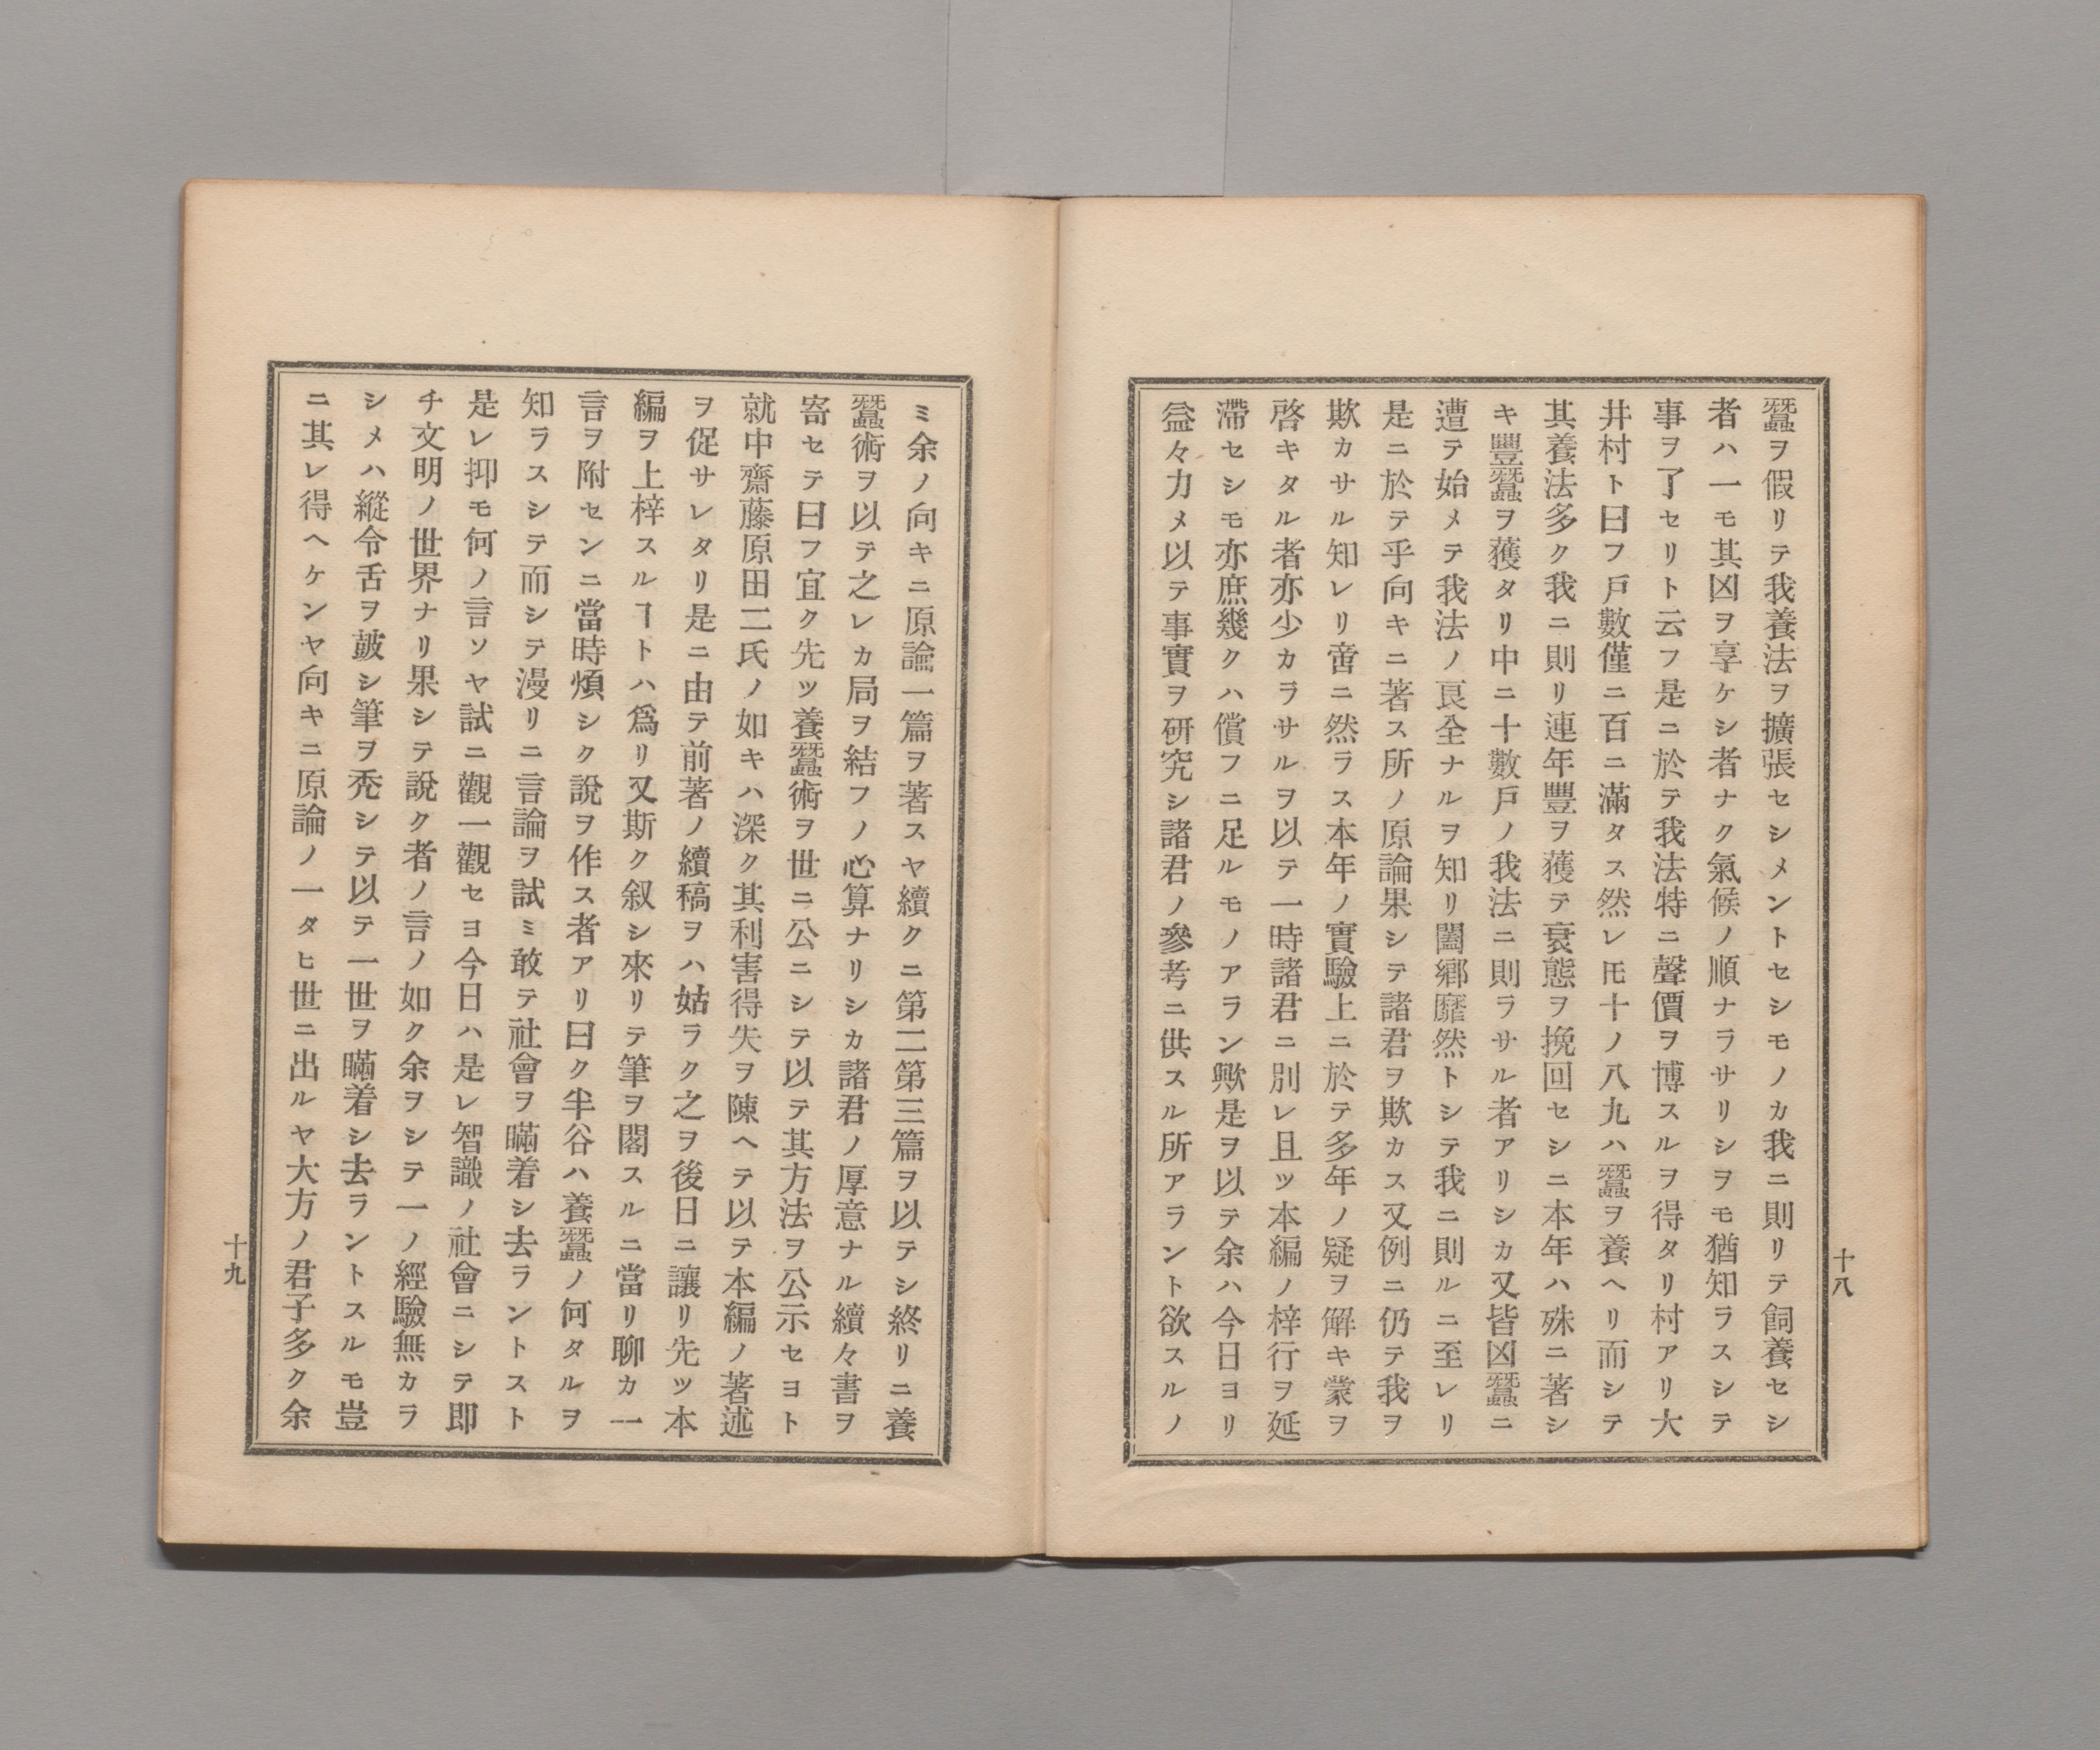 蠶ヲ假リテ我養法ヲ擴張セシメントセシモノカ我ニ則リテ飼養セシ
者ハ一モ其凶ヲ享ケシ者ナク氣候ノ順ナラサリシヲモ猶知ラスシテ
事ヲ了セリト云フ是ニ於テ我法特ニ聲價ヲ博スルヲ得タリ村アリ大
井村ト曰フ戸數僅ニ百ニ滿タス然レ𪜈十ノ八九ハ蠶ヲ養ヘリ而シテ
其養法多ク我ニ則リ連年豐ヲ獲テ衰態ヲ挽回セシニ本年ハ殊ニ著シ
キ豐蠶ヲ獲タリ中ニ十數戸ノ我法ニ則ラサル者アリシカ又皆凶蠶ニ
遭テ始メテ我法ノ良全ナルヲ知リ闔鄕靡然トシテ我ニ則ルニ至レリ
是ニ於テ乎向キニ著ス所ノ原論果シテ諸君ヲ欺カス又例ニ仍テ我ヲ
欺カサル知レリ啻ニ然ラス本年ノ實驗上ニ於テ多年ノ疑ヲ解キ蒙ヲ
啓キタル者亦少カラサルヲ以テ一時諸君ニ別レ且ツ本編ノ梓行ヲ延
滯セシモ亦庶幾クハ償フニ足ルモノアラン歟是ヲ以テ余ハ今日ヨリ
益々力メ以テ事實ヲ研究シ諸君ノ參考ニ供スル所アラント欲スルノ
十八
ミ余ノ向キニ原論一篇ヲ著スヤ續クニ第二第三篇ヲ以テシ終リニ養
蠶術ヲ以テ之レカ局ヲ結フノ心算ナリシカ諸君ノ厚意ナル續々書ヲ
寄セテ曰フ宜ク先ツ養蠶術ヲ世ニ公ニシテ以テ其方法ヲ公示セヨト
就中齋藤原田二氏ノ如キハ深ク其利害得失ヲ陳ヘテ以テ本編ノ著述
ヲ促サレタリ是ニ由テ前著ノ續稿ヲハ姑ラク之ヲ後日ニ讓リ先ツ本
編ヲ上梓スルヿトハ爲リ又斯ク叙シ來リテ筆ヲ閣スルニ當リ聊カ一
言ヲ附センニ當時煩シク說ヲ作ス者アリ曰ク半谷ハ養蠶ノ何タルヲ
知ラスシテ而シテ漫リニ言論ヲ試ミ敢テ社會ヲ瞞着シ去ラントスト
是レ抑モ何ノ言ソヤ試ニ觀一觀セヨ今日ハ是レ智識ノ社會ニシテ即
チ文明ノ世界ナリ果シテ說ク者ノ言ノ如ク余ヲシテ一ノ經驗無カラ
シメハ縱令舌ヲ皷シ筆ヲ禿シテ以テ一世ヲ瞞着シ去ラントスルモ豈
ニ其レ得ヘケンヤ向キニ原論ノ一タヒ世ニ出ルヤ大方ノ君子多ク余
十九